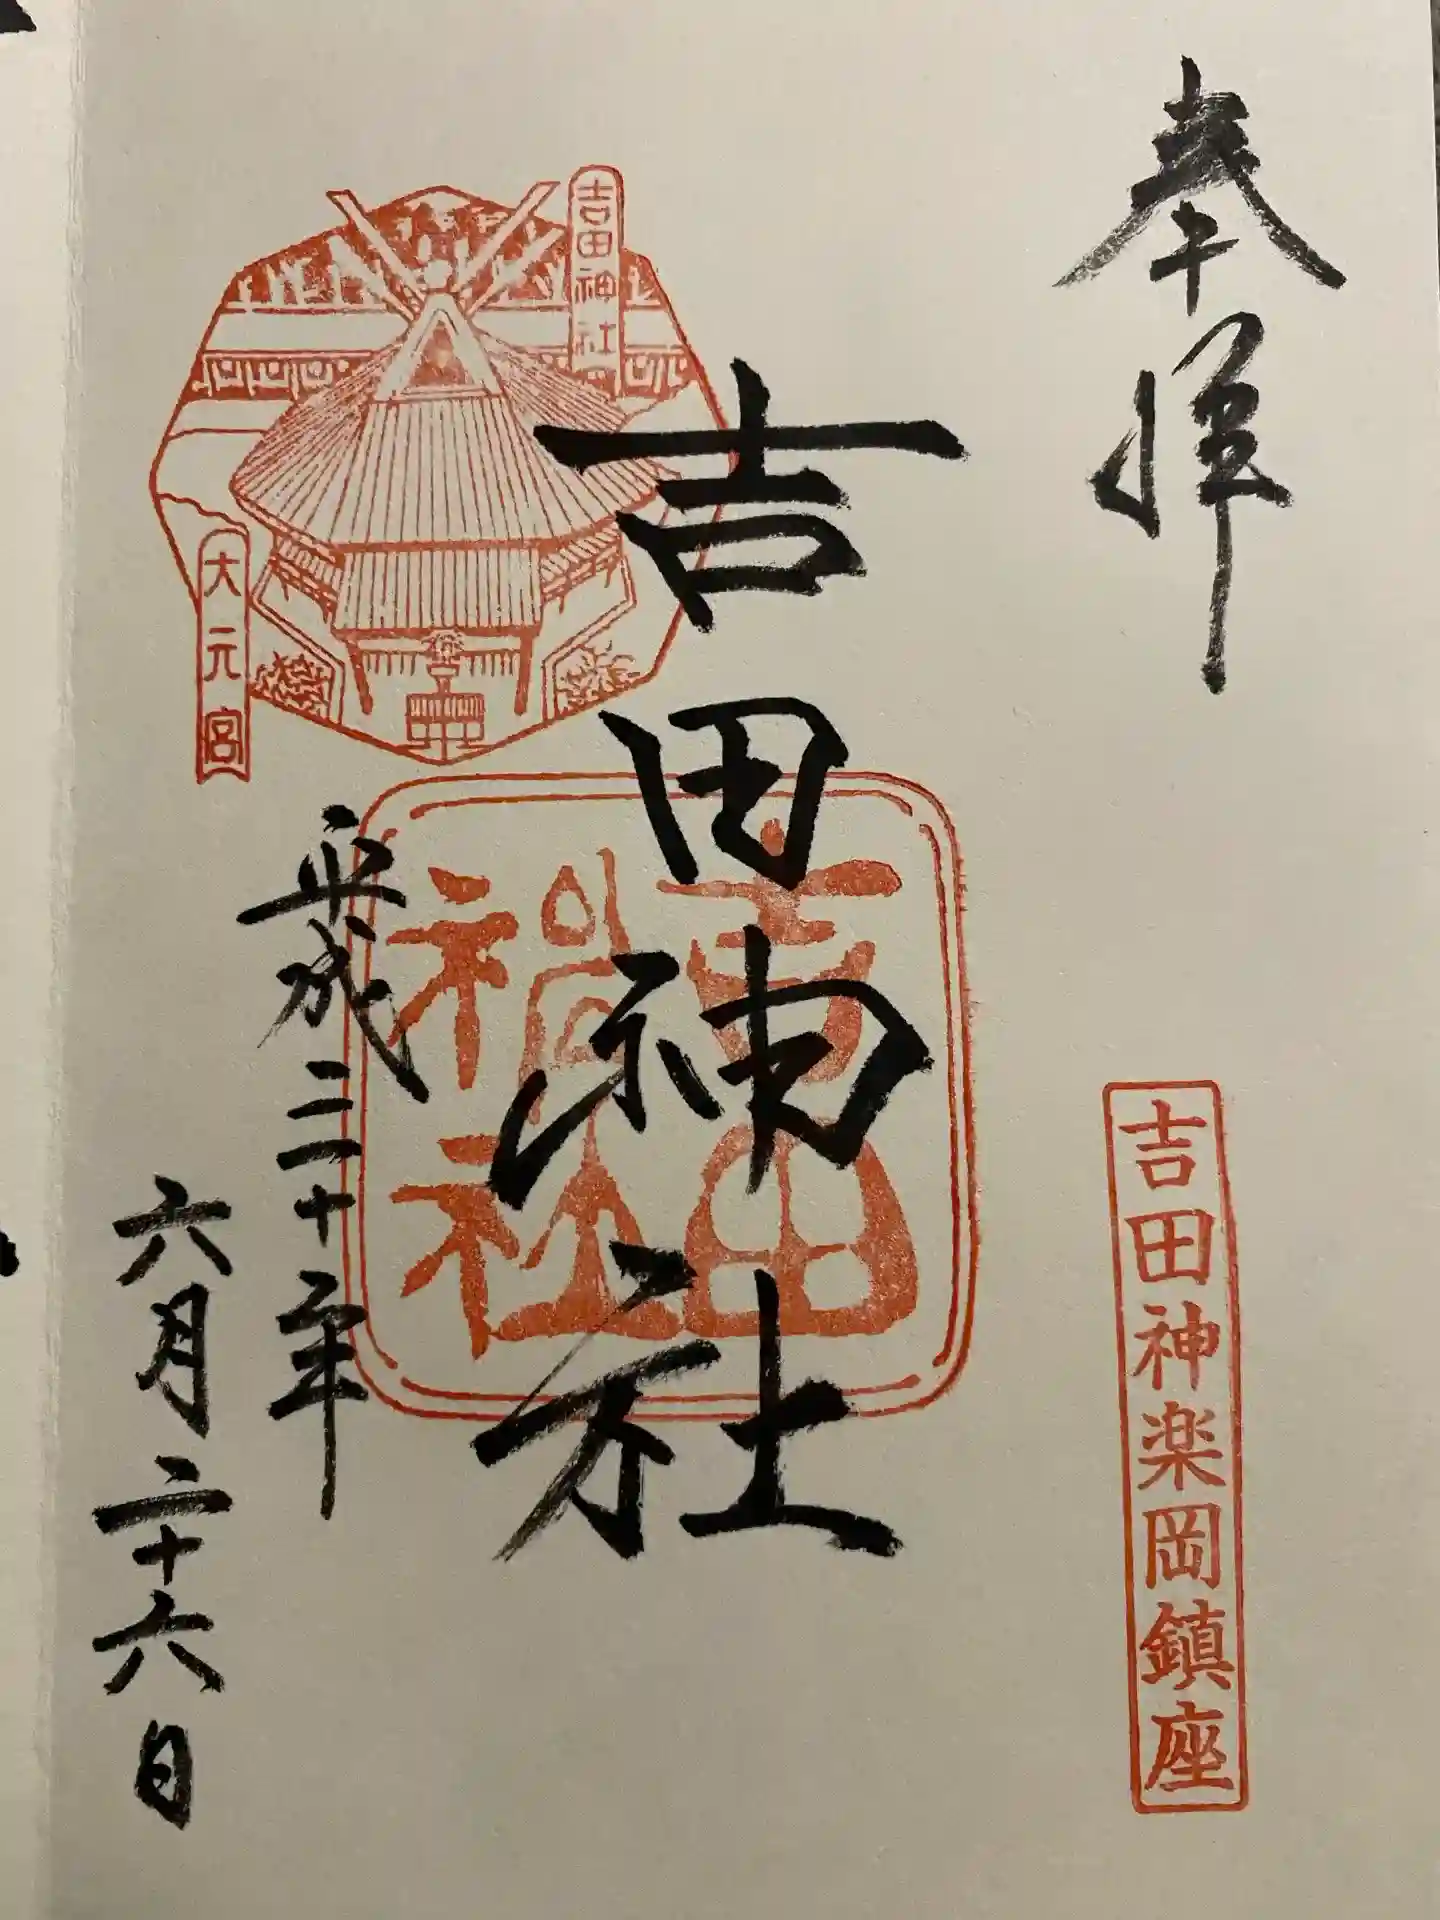 奉拝
吉田神楽岡鎮座
吉田神社
吉田
神社
吉田神社
大元宮
平成三十年
六月二十六日